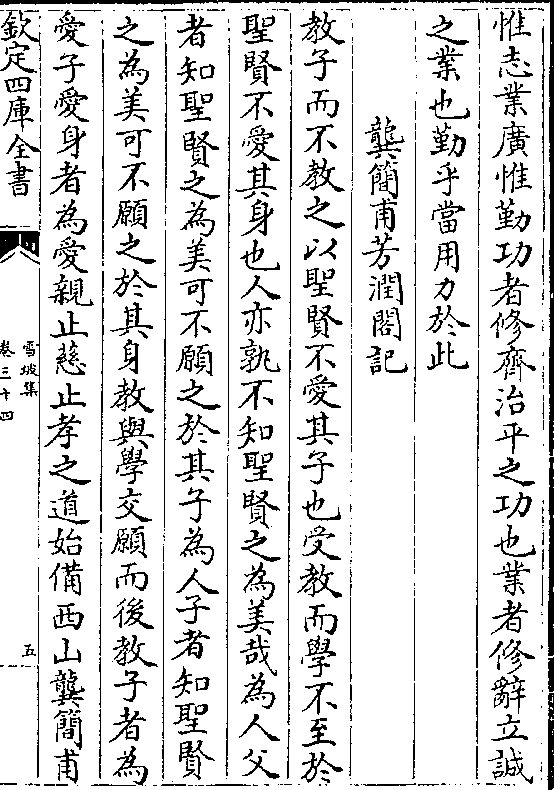 惟志業廣惟勤功者修齊治平之功也業者修辭立誠
之業也勤乎當用力於此
龔簡甫芳潤閣記
教子而不教之以聖賢不愛其子也受教而學不至於
聖賢不愛其身也人亦孰不知聖賢之為美哉為人父
者知聖賢之為美可不願之於其子為人子者知聖賢
之為美可不願之於其身教與學交願而後教子者為
愛子愛身者為愛親止慈止孝之道始備西山龔簡甫
欽定四庫全書
雪坡集
卷三十四
五